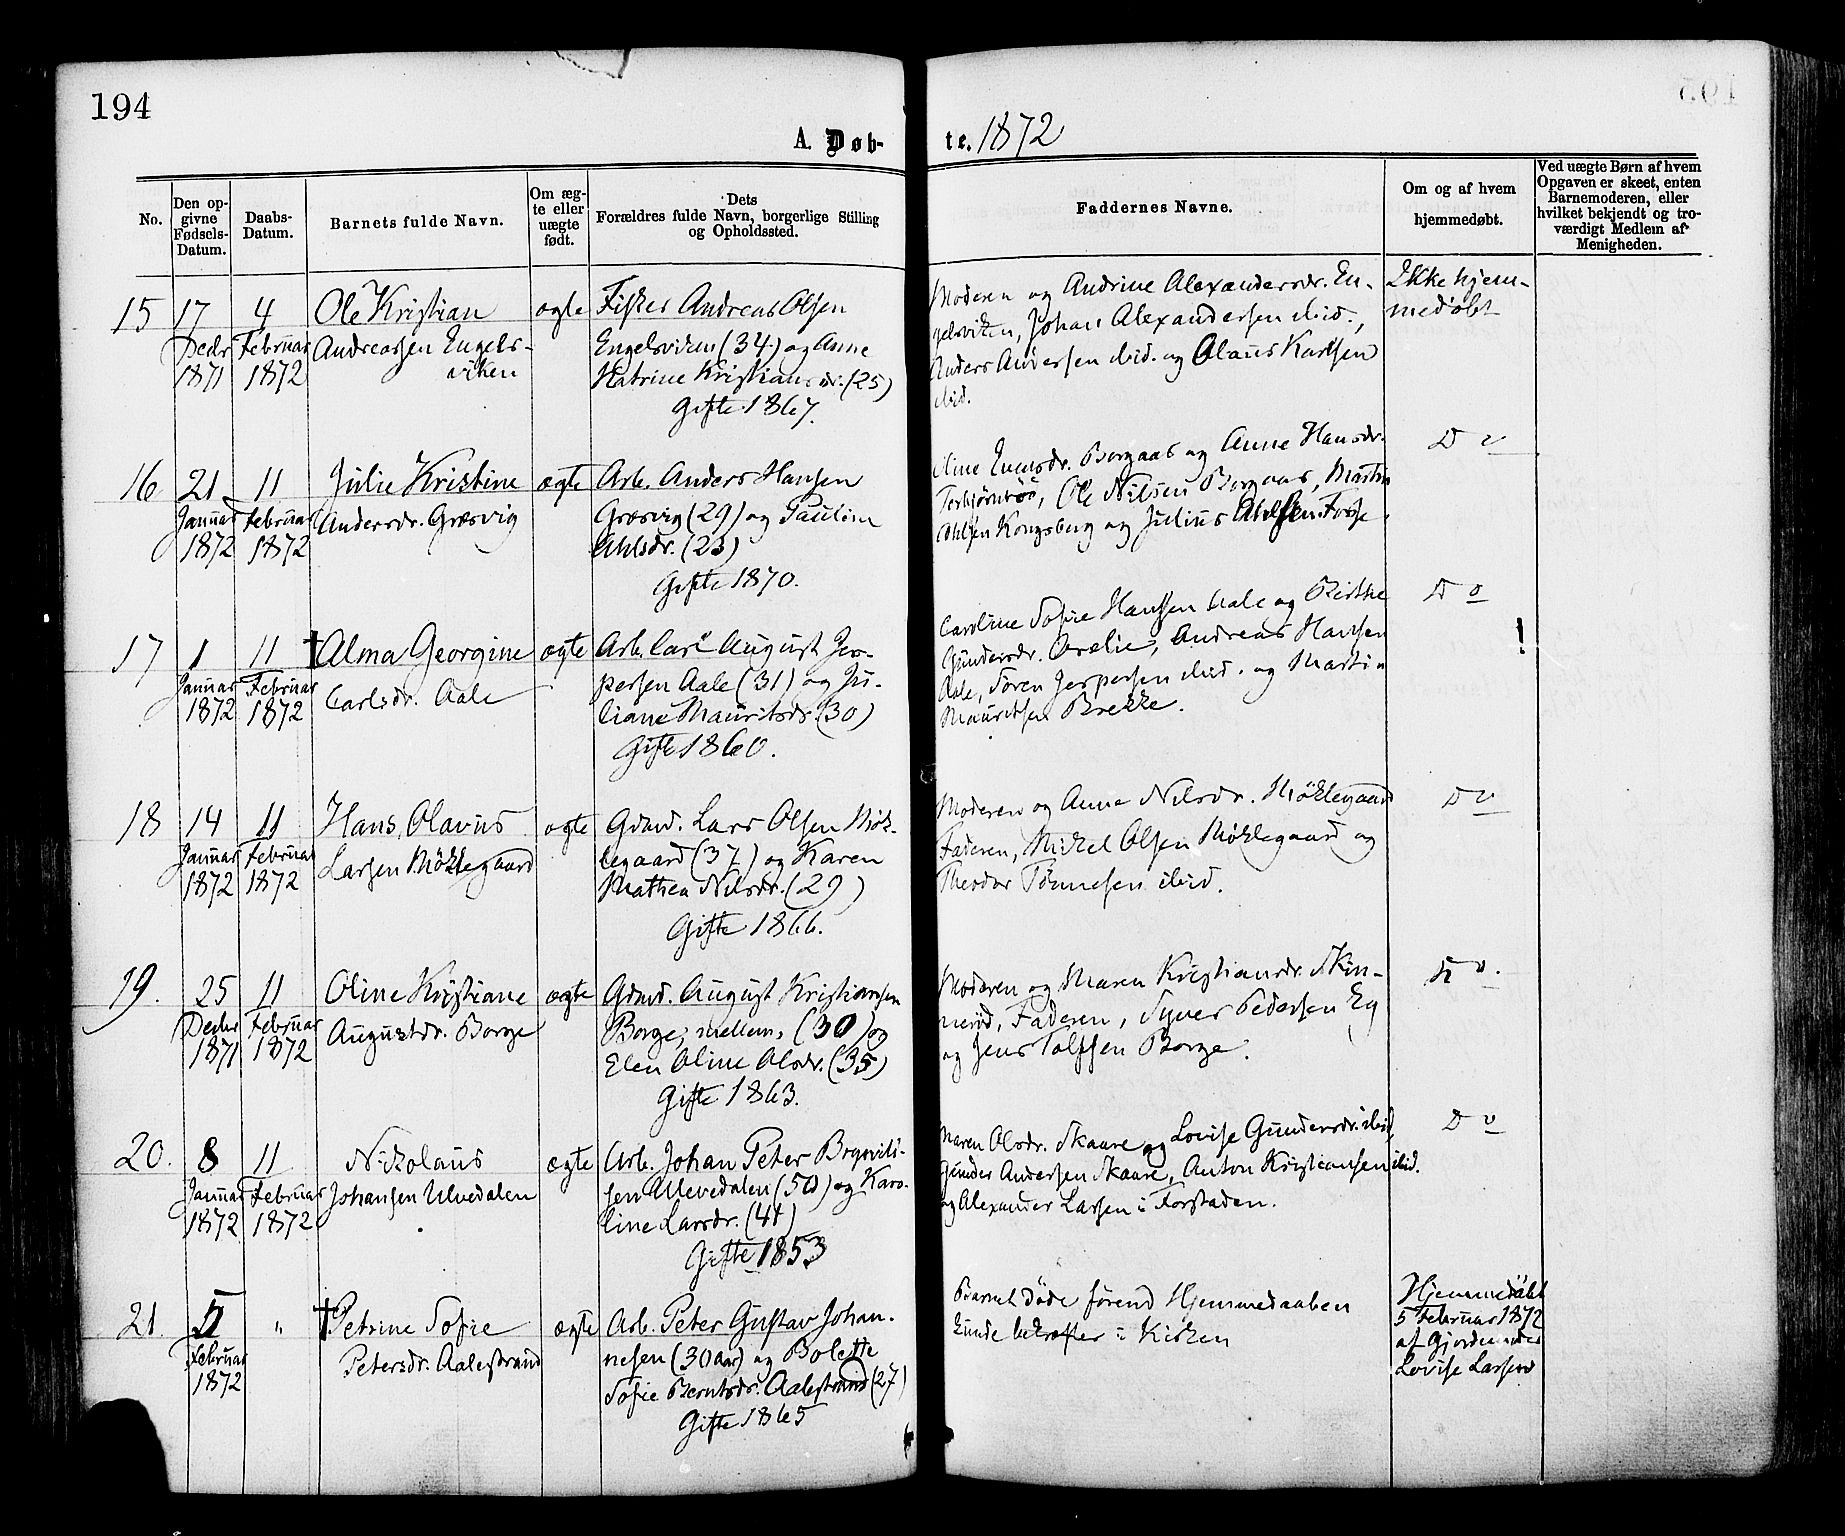 194
A. Døb-
te. 1872
No.
Den op-
givne
Fødsels-
Datum.
Daabs-
Datum.
Barnets fulde Navn.
Om æg-
te eller
uægte
født.
Dets
Forældres fulde Navn, borgerlige Stilling
og Opholdssted.
Faddernes Navne.
Om og af hvem
hjemmedøbt.
Ved uægte Børn af hvem
Opgaven er skeet, enten
Barnemoderen, eller
hvilket bekjendt og tro-
værdigt Medlem af
Menigheden.
15
17
Decbr
1871
4
Februar
1872
Ole Kristian
Andreassen Engels-
viken
ægte
Fisker Andreas Olsen
Engelsviken (34) og Anne
Katrine Kristiansdr. (25)
Gifte 1867.
Moderen og Andrine Alexandersdr. En-
gelsviken, Johan Alexandersen ibid.,
Anders Andersen ibid. og Olaus Karlsen
ibid.
Ikke hjem-
medøbt
16
21
Januar
1872
11
Februar
1872
Julie Kristine
Andersdr. Græsvig
ægte
Arb. Anders Hansen
Græsvig (29) og Pauline
Ahlsdr. (23)
Gifte 1870.
Borgaas og Anne Hansdr.
Ole Nilsen Borgaas, Martin
Ahlsen Kongsberg og Julius Ahlsen
Do
17
1
Januar
1872
11
Februar
1872
† Alma Georgine
Carlsdr. Aale
ægte
Arb. Carl August Jes-
persen Aale (31) og Ju-
liane Mauritsdr. (30)
Gifte 1860.
Caroline Sofie Hansen Aale og Birthe
Gundersdr. Andreas Hansen
Aale, Søren Jespersen ibid. og Martin
Mauritsen Brekke.
Do
!
18
14
Januar
1872
11
Februar
1872
Hans Olavus
Larsen Møklegaard
ægte
Gdmd. Lars Olsen Møk-
legaard (37) og Karen
Mathea Nilsdr. (29)
Gifte 1866.
Moderen og Anne Nilsdr. Møklegaard
Faderen, Mikel Olsen Møklegaard og
Theodor Tønnesen ibid.
Do
19.
25
Decbr
1871
11
Februar
1872
Oline Kristiane
Augustdr. Borge
ægte
Gdmd. August Kristiansen
Borge, mellem, (30) og
Elen Oline Olsdr. (35)
Gifte 1863.
Moderen og Maren Kristiansdr. Skin-
nerud, Faderen, Syver Pedersen Eg
og Jens Borge.
Do.
20.
8
Januar
1872
11
Februar
1872
Nikolaus
Johansen Ulvedalen
ægte
Arb. Johan Peter
sen Ulevedalen (50) og Karo-
line Larsdr. (41)
Gifte 1853
Maren Olsdr. Skaare og Lovise Gundersdr. ibid,
Gunder Andersen Skaare, Anton Kristiansen ibid.
og Alexander Larsen i Forstaden.
Do
21.
5
Februar
1872
"
† Petrine Sofie
Petersdr. Aalestrand
ægte
Arb. Peter Gustav Johan-
nesen (30 aar) og Bolette
Sofie Berntsdr. Aalestrand (27)
Gifte 1865
Barnet døde førend Hjemmedaaben
kunde bekræftes i Kirken
Hjemmedøbt
5 Februar 1872
af Gjordemoder
Lovise Larsen